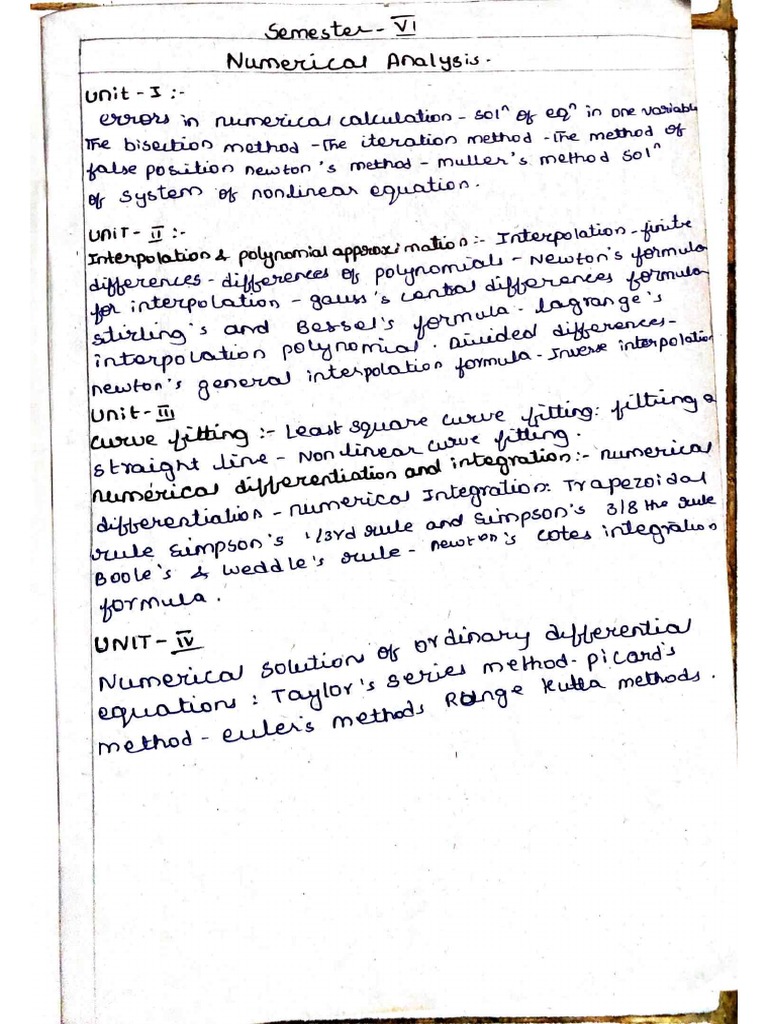 Semester - VI
Numerical Analysis.
Unit - I :-
errors in numerical calculation - solⁿ of eqⁿ in one variable
The bisection method - The iteration method - The method of
false position newton's method - muller's method solⁿ
of system of nonlinear equation.
UNIT - II :-
Interpolation & polynomial approximation :- Interpolation - finite
differences - differences of polynomials - Newton's formula
for interpolation - gauss's cental differences formula
stirling's and Bessel's formula - lagrange's
interpolation polynomial. Divided differences -
newton's general interpolation formula - Inverse interpolation
Unit - III
curve fitting :- Least square curve fitting: filtiing a
straight line - Non linear curve fitting.
numerical differentiation and integration :- numerical
differentiation - numerical Integration: Trapezoidal
rule simpson's 1/3rd rule and simpson's 3/8 the rule
Boole's & weddle's rule - newton's cotes integration
formula.
UNIT - IV
Numerical solution of ordinary differential
equations : Taylor's series method - picard's
method - euler's methods Runge kutta methods.